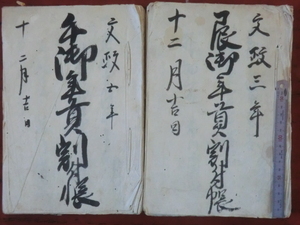 文政三年
辰御年貢割付帳
十二月吉日
文政五年
午御年貢割付帳
十二月吉日